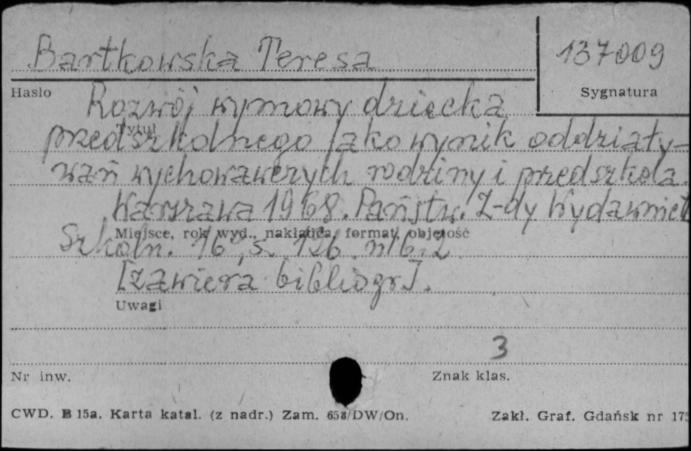 Bartkowska Teresa
137009
Hasło
Sygnatura
Rozwój wymowy dziecka
Tytuł
przedszkolnego jako wynik oddziały-
wań wychowawczych rodziny i przedszkola.
Warszawa 1968. Państw. Z-dy Wydawnict
Miejsce, rok wyd., nakładca, format, objętość
Szkoln. 16°, s. 126
[zawiera bibliogr].
Uwagi
3
Nr inw.
Znak klas.
CWD. B 15a. Karta katal. (z nadr.) Zam. 658/DW/On.
Zakł. Graf. Gdańsk nr 17